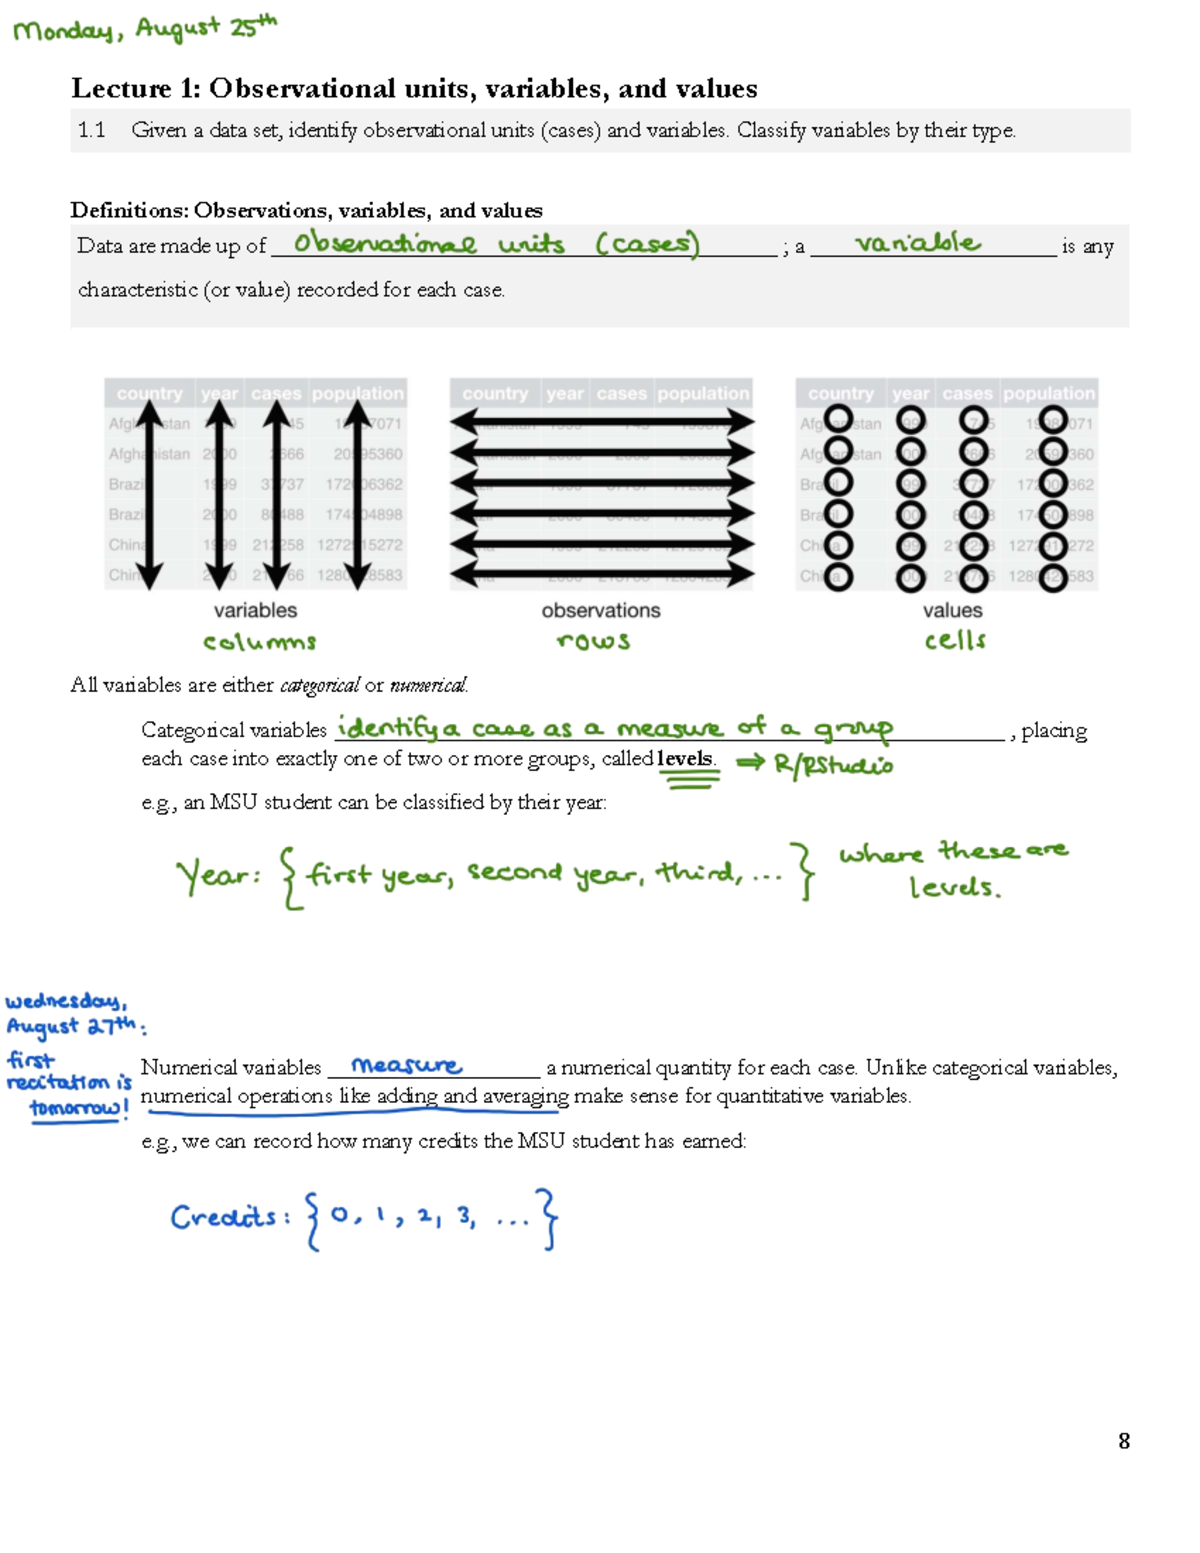 Monday, August 25th
Lecture 1: Observational units, variables, and values
1.1 Given a data set, identify observational units (cases) and variables. Classify variables by their type.
Definitions: Observations, variables, and values
Data are made up of observational units (cases) ; a variable is any
characteristic (or value) recorded for each case.
country year cases population
Afghanistan
Afghanistan
Brazil
Brazil
China
China
variables
columns
country year cases population
observations
rows
country year cases population
values
cells
All variables are either categorical or numerical.
Categorical variables identify a case as a measure of a group , placing
each case into exactly one of two or more groups, called levels. ⇒ R/RStudio
e.g., an MSU student can be classified by their year:
Year: { first year, second year, third, ... } where these are
levels.
wednesday,
August 27th:
first
recitation is
tomorrow!
Numerical variables measure a numerical quantity for each case. Unlike categorical variables,
numerical operations like adding and averaging make sense for quantitative variables.
e.g., we can record how many credits the MSU student has earned:
Credits: { 0, 1, 2, 3, ... }
8